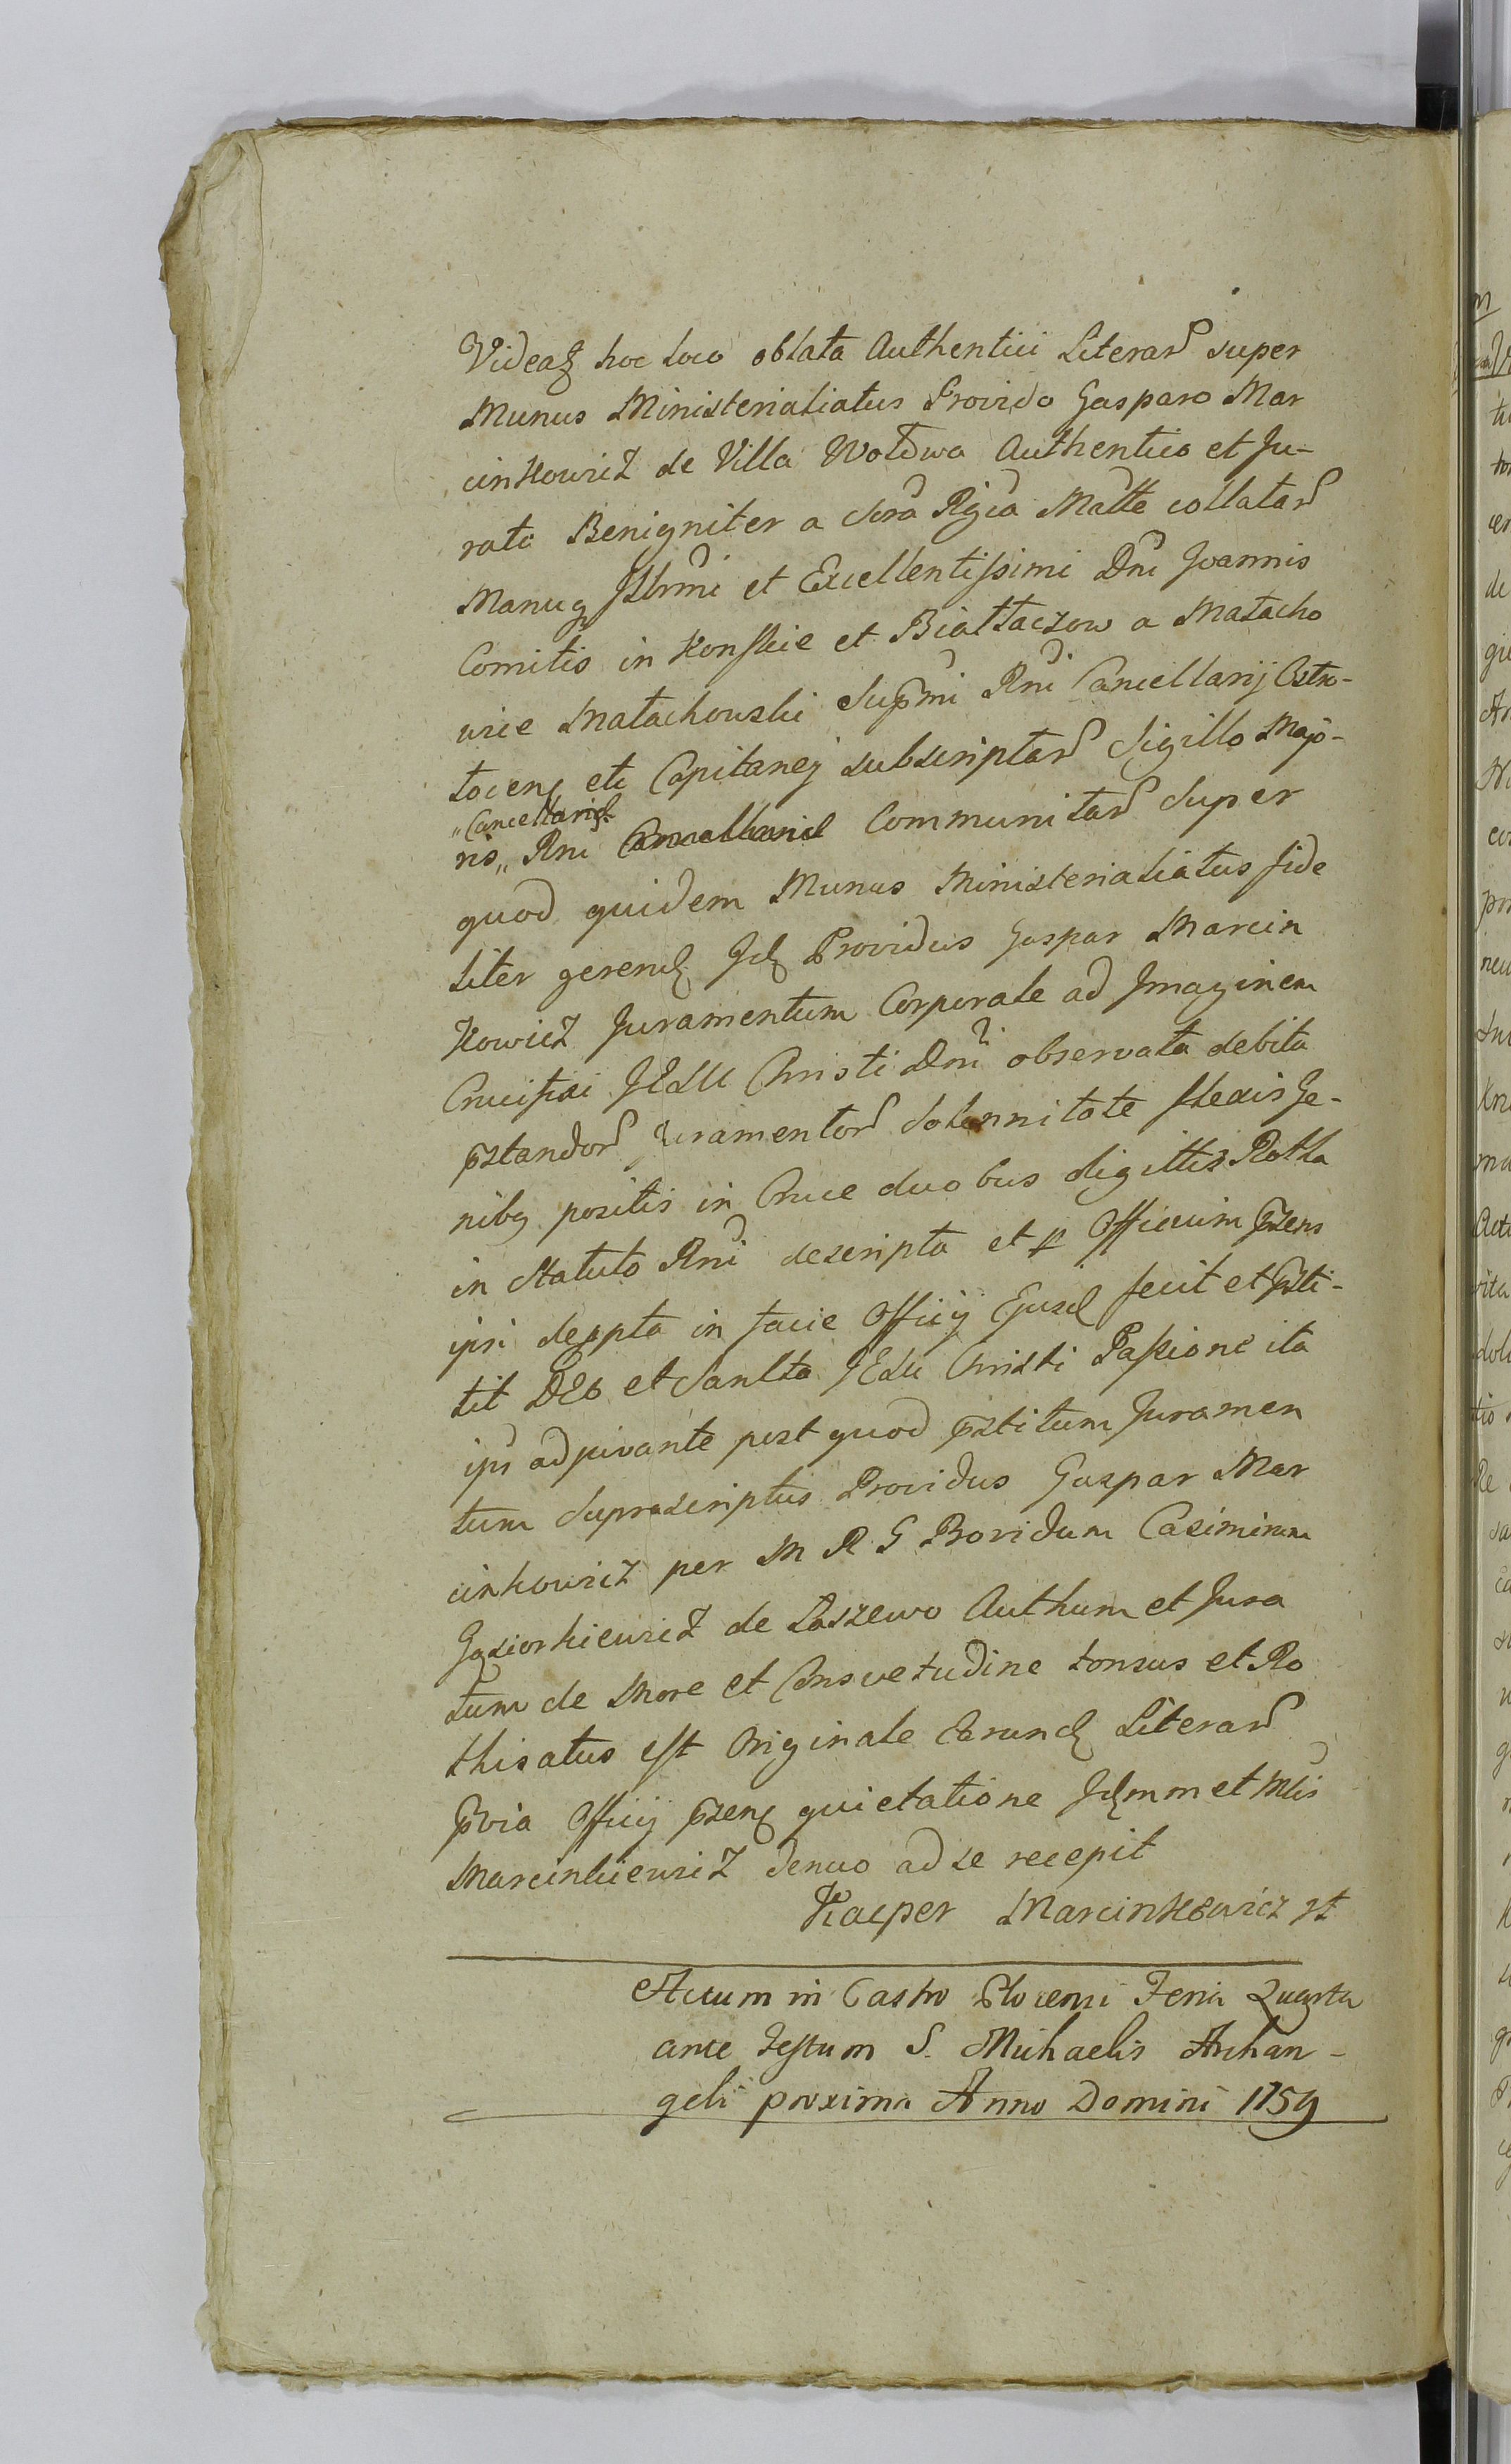 Videaꝫ hoc loco oblata Authentici Literar super
Munus Ministerialiatus Provido Gasparo Mar
cinkowicz de Villa Wołdwa Authentico et Ju-
rato Benigniter a Sera Rgia Matte collatar
Manuq Illrmi et Excellentissimi Dni Joannis
Comitis in Konskie et Białłaczow a Małacho
wice Małachowski Supmi Rni Cancellarij Ostro-
łocenꝫ etc Capitanej subscriptar Sigillo Majo-
"Cancellariꝫ
ris „ Rni Communitar Super
quod quidem Munus Ministerialiatus fide
liter gerendꝫ Idꝫ Providus Gaspar Marcin
Kowicz Juramentum Corporale ad Imaginem
Crucifixi JESU Christi Dni observata debita
pstandor Juramentor Solennitate flexis Ge-
nibꝫ positis in Cruce duobus digittis Rotha
in Statuto Rni descripta et p Officium pzens
ipsi deppta in facie Officij Ejusd fecit et psti-
tit DEO et Sancta JESU Christi Passione ita
ipsi adjuvante post quod pstitum Juramen
tum Suprascriptus Providus Gaspar Mar
cinkowicz per M R G Providum Casimirum
Gąsiorkiewicz de Łaszewo Authum et Jura
tum de More et Consvetudine tonsus et Ro
thisatus est Originale Earundꝫ Literar
pvia Officij pzenꝫ quietatione Idꝫmmet Mlis
Marcinkiewicz denuo ad se recepit
Kacper Marcinkowicz
Actum in Castro Plocensi Feria Quarta
ante Festum S. Michaelis Archan-
geli proxima Anno Domini 1759